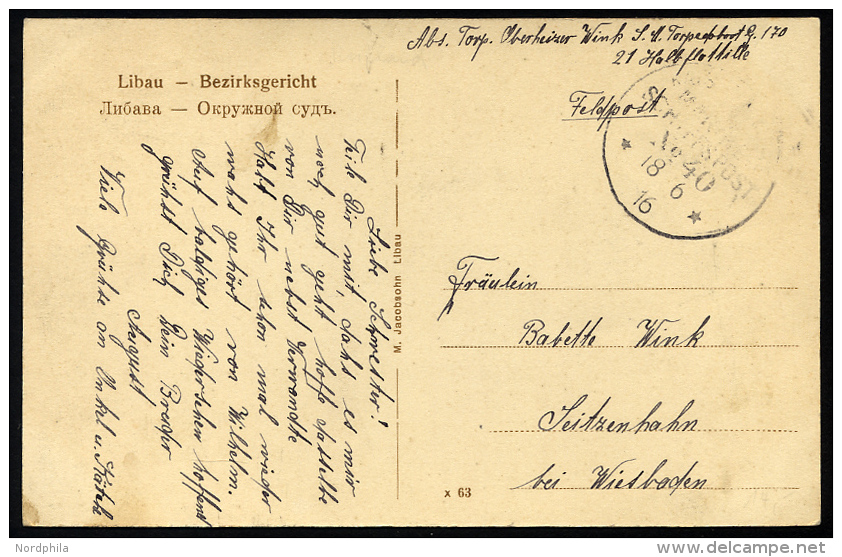 Abs. Torp. Oberheizer Wink S. M. Torpedoboot G. 170
21 Halbflottille
Libau — Bezirksgericht
Либава — Окружной судъ.
Feldpost
SCHIFFSPOST
No 40
* 18 6 *
16
Liebe Schwester!
Teile Dir mit, dahs es mir
noch gut geht hoffe dasselbe
von Dir nebst Verwandte
Habt Ihr schon mal wieder
wahs gehört von Wilhelm.
Auf baldiges Wiedersehen hoffend
grühst Dich Dein Bruder
August
Viele Grühse an Onkel u.
M. Jacobsohn Libau
Fräulein
Babette Wink
Seitzenhahn
bei Wiesbaden
x 63
Nordphila
delcampe.net